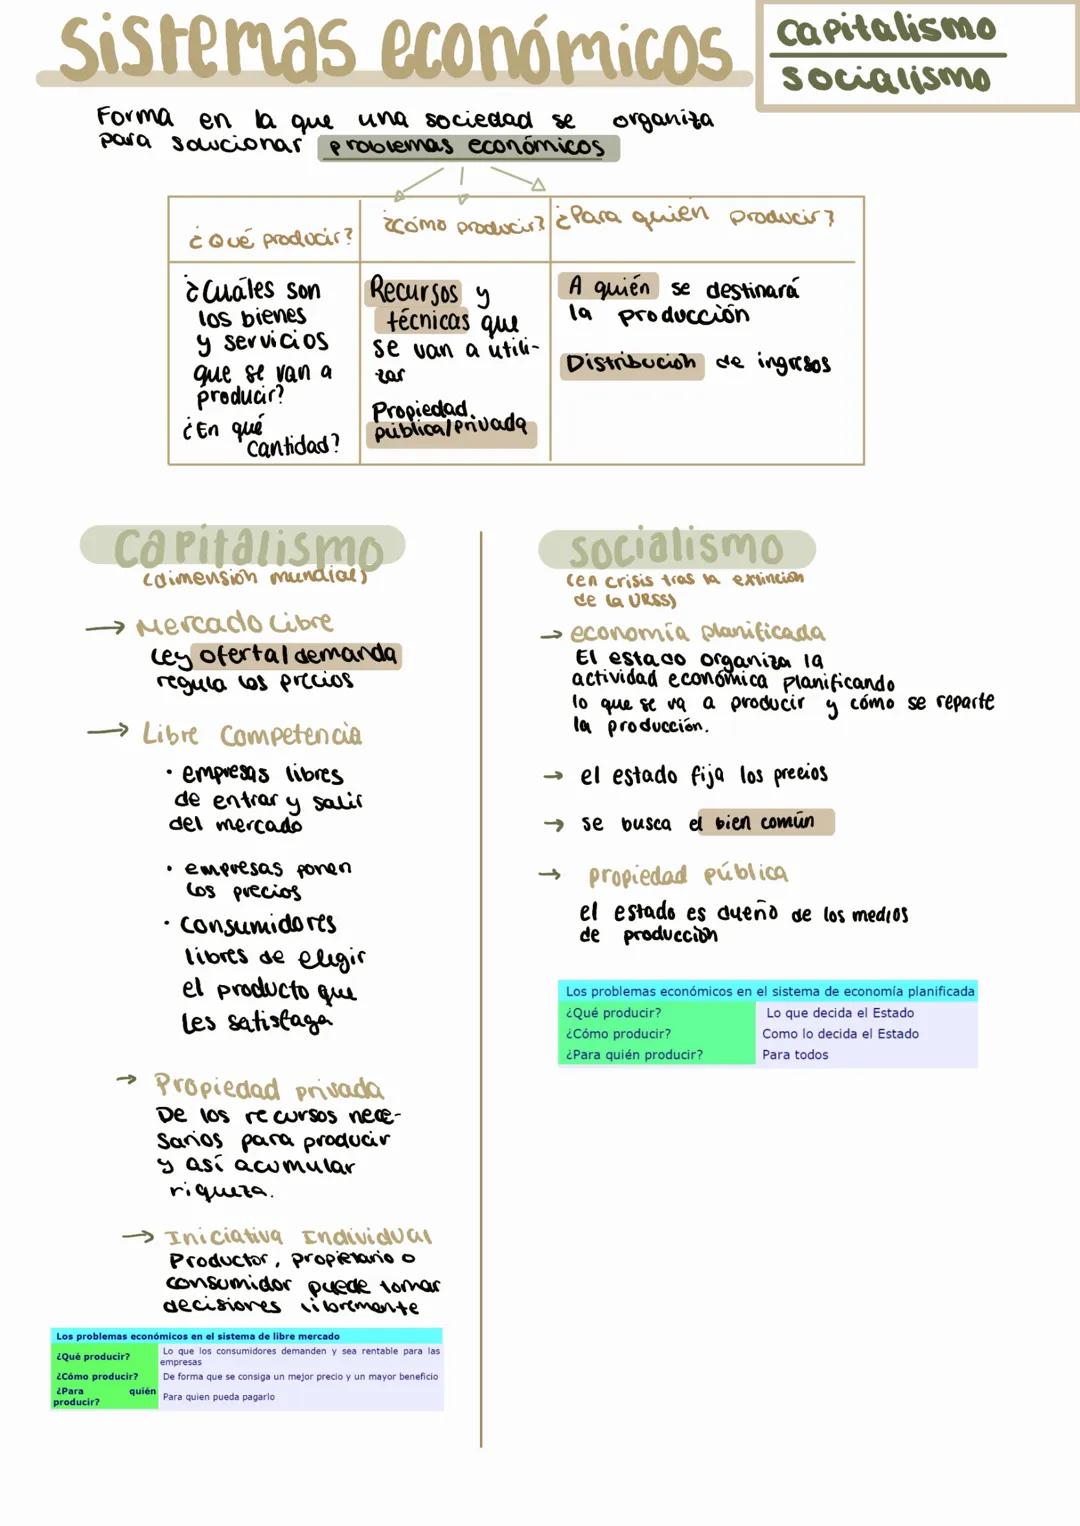 sistemas económicos
capitalismo
socialismo
Forma en la que una sociedad se organiza
para solucionar problemas económicos
¿Qué producir?
¿Cómo producir?
¿Para quién producir?
¿Cuáles son
los bienes
y servicios
que se van a
producir?
¿En qué
cantidad?
Recursos y
técnicas que
se van a utili-
zar
Propiedad
pública/privada
A quién se destinará
la producción
Distribución de ingresos
capitalismo
(dimensión mundial)
→ Mercado Libre
Ley oferta/demanda
regula los precios
→ Libre Competencia
· empresas libres
de entrar y salir
del mercado
· empresas ponen
los precios
· Consumidores
libres de elegir
el producto que
les satisfaga
→ Propiedad privada
De los recursos nece-
sarios para producir
y así acumular
riqueza.
→ Iniciativa Individual
Productor, propietario o
consumidor puede tomar
decisiones libremente
Los problemas económicos en el sistema de libre mercado
¿Qué producir? Lo que los consumidores demanden y sea rentable para las
empresas
¿Cómo producir? De forma que se consiga un mejor precio y un mayor beneficio
¿Para quién
producir? Para quien pueda pagarlo
socialismo
(en crisis tras la extinción
de la URSS)
→ economía planificada
El estado organiza la
actividad económica planificando
lo que se va a producir y cómo se reparte
la producción.
→ el estado fija los precios
→ se busca el bien común
→ propiedad pública
el estado es dueño de los medios
de producción
Los problemas económicos en el sistema de economía planificada
¿Qué producir? Lo que decida el Estado
¿Cómo producir? Como lo decida el Estado
¿Para quién producir? Para todos